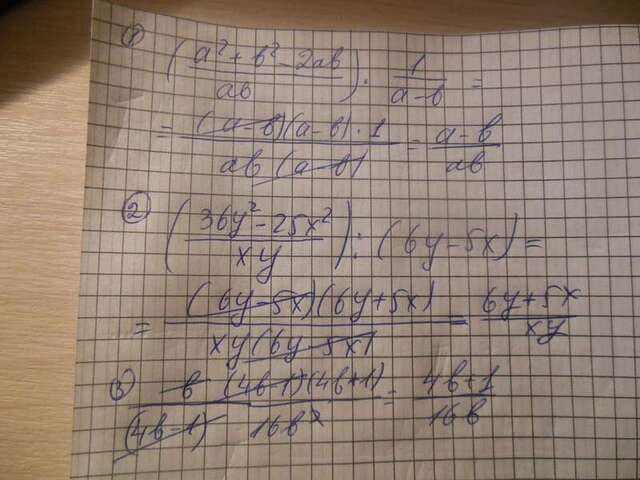 1) (a² + b² - 2ab / ab) · 1 / a-b =
= (a-b)(a-b) · 1 / ab (a-b) = a-b / ab
2) (36y² - 25x² / xy) : (6y - 5x) =
= (6y-5x)(6y+5x) / xy(6y-5x) = 6y+5x / xy
3) b (4b-1)(4b+1) / (4b-1) 16b² = 4b+1 / 16b